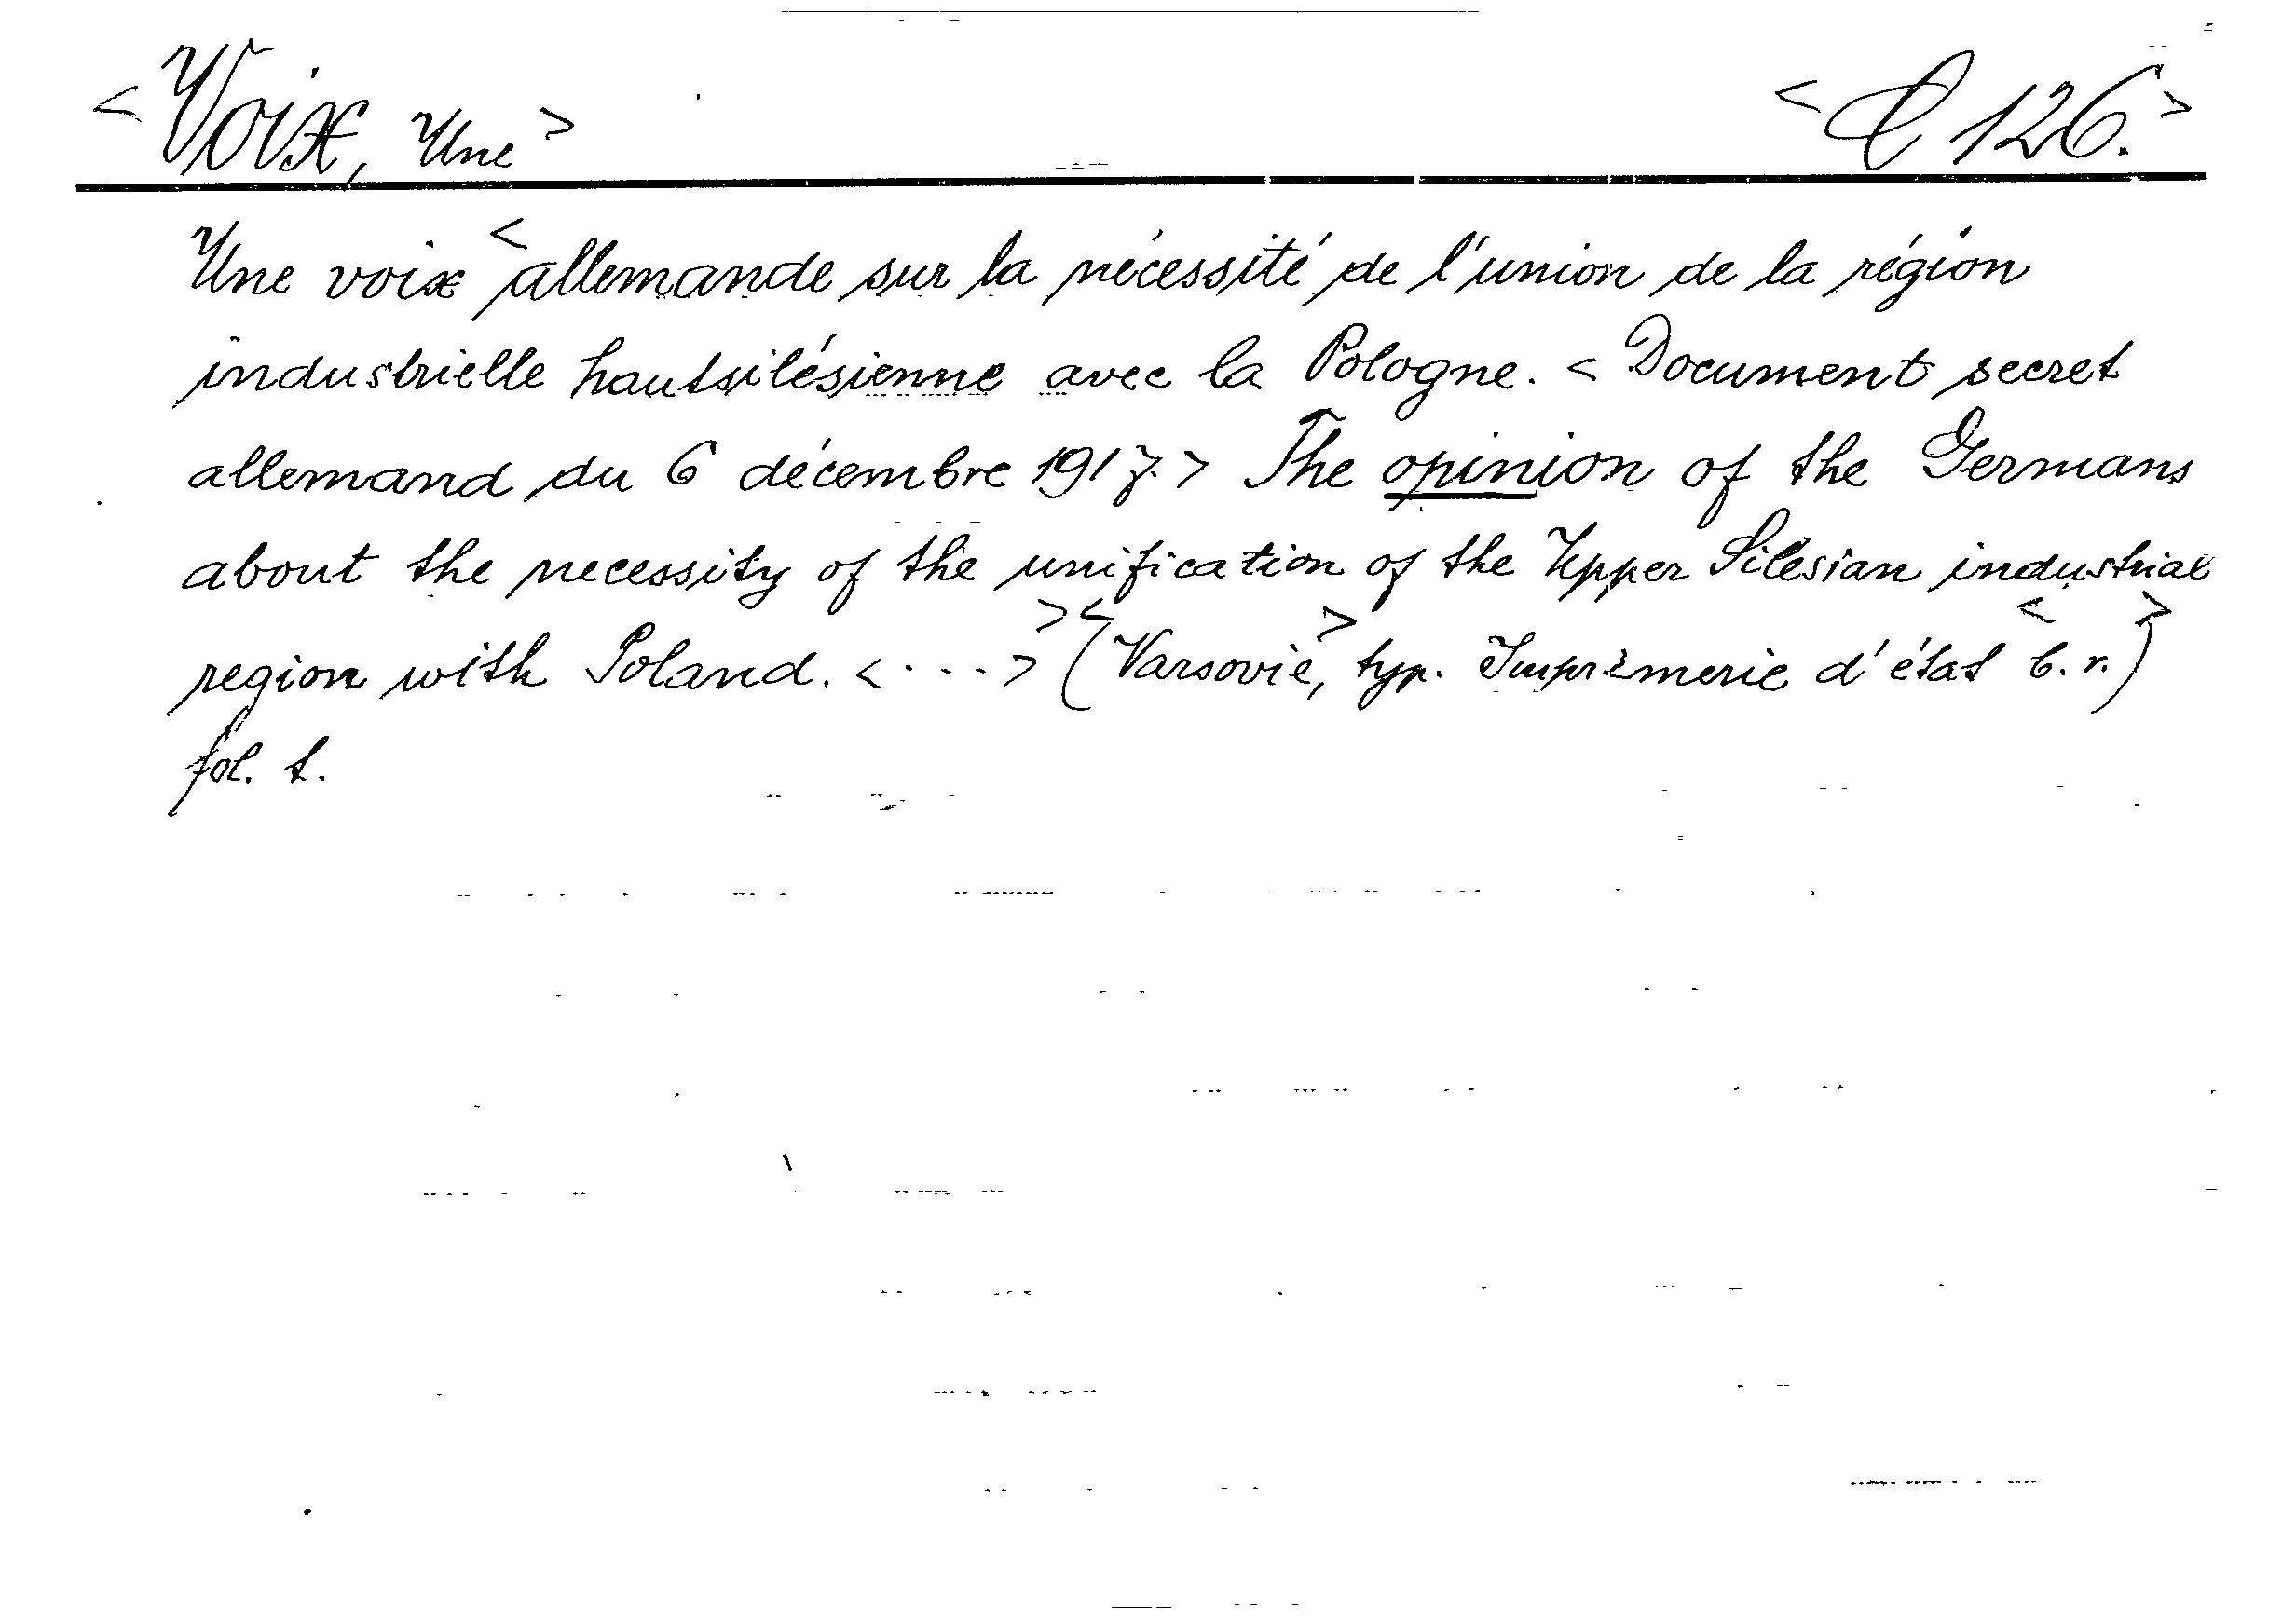 <Voix, Une> <C 126.>
Une voix <allemande sur la nécessité de l'union de la région
industrielle hautsilésienne avec la Pologne. <Document secret
allemand du 6 décembre 1917.> The opinion of the Germans
about the necessity of the unification of the Upper Silesian industrial
region with Poland. <...>> <(Varsovie>, typ. Imprimerie d'état <b.r.>)
fol. 1.